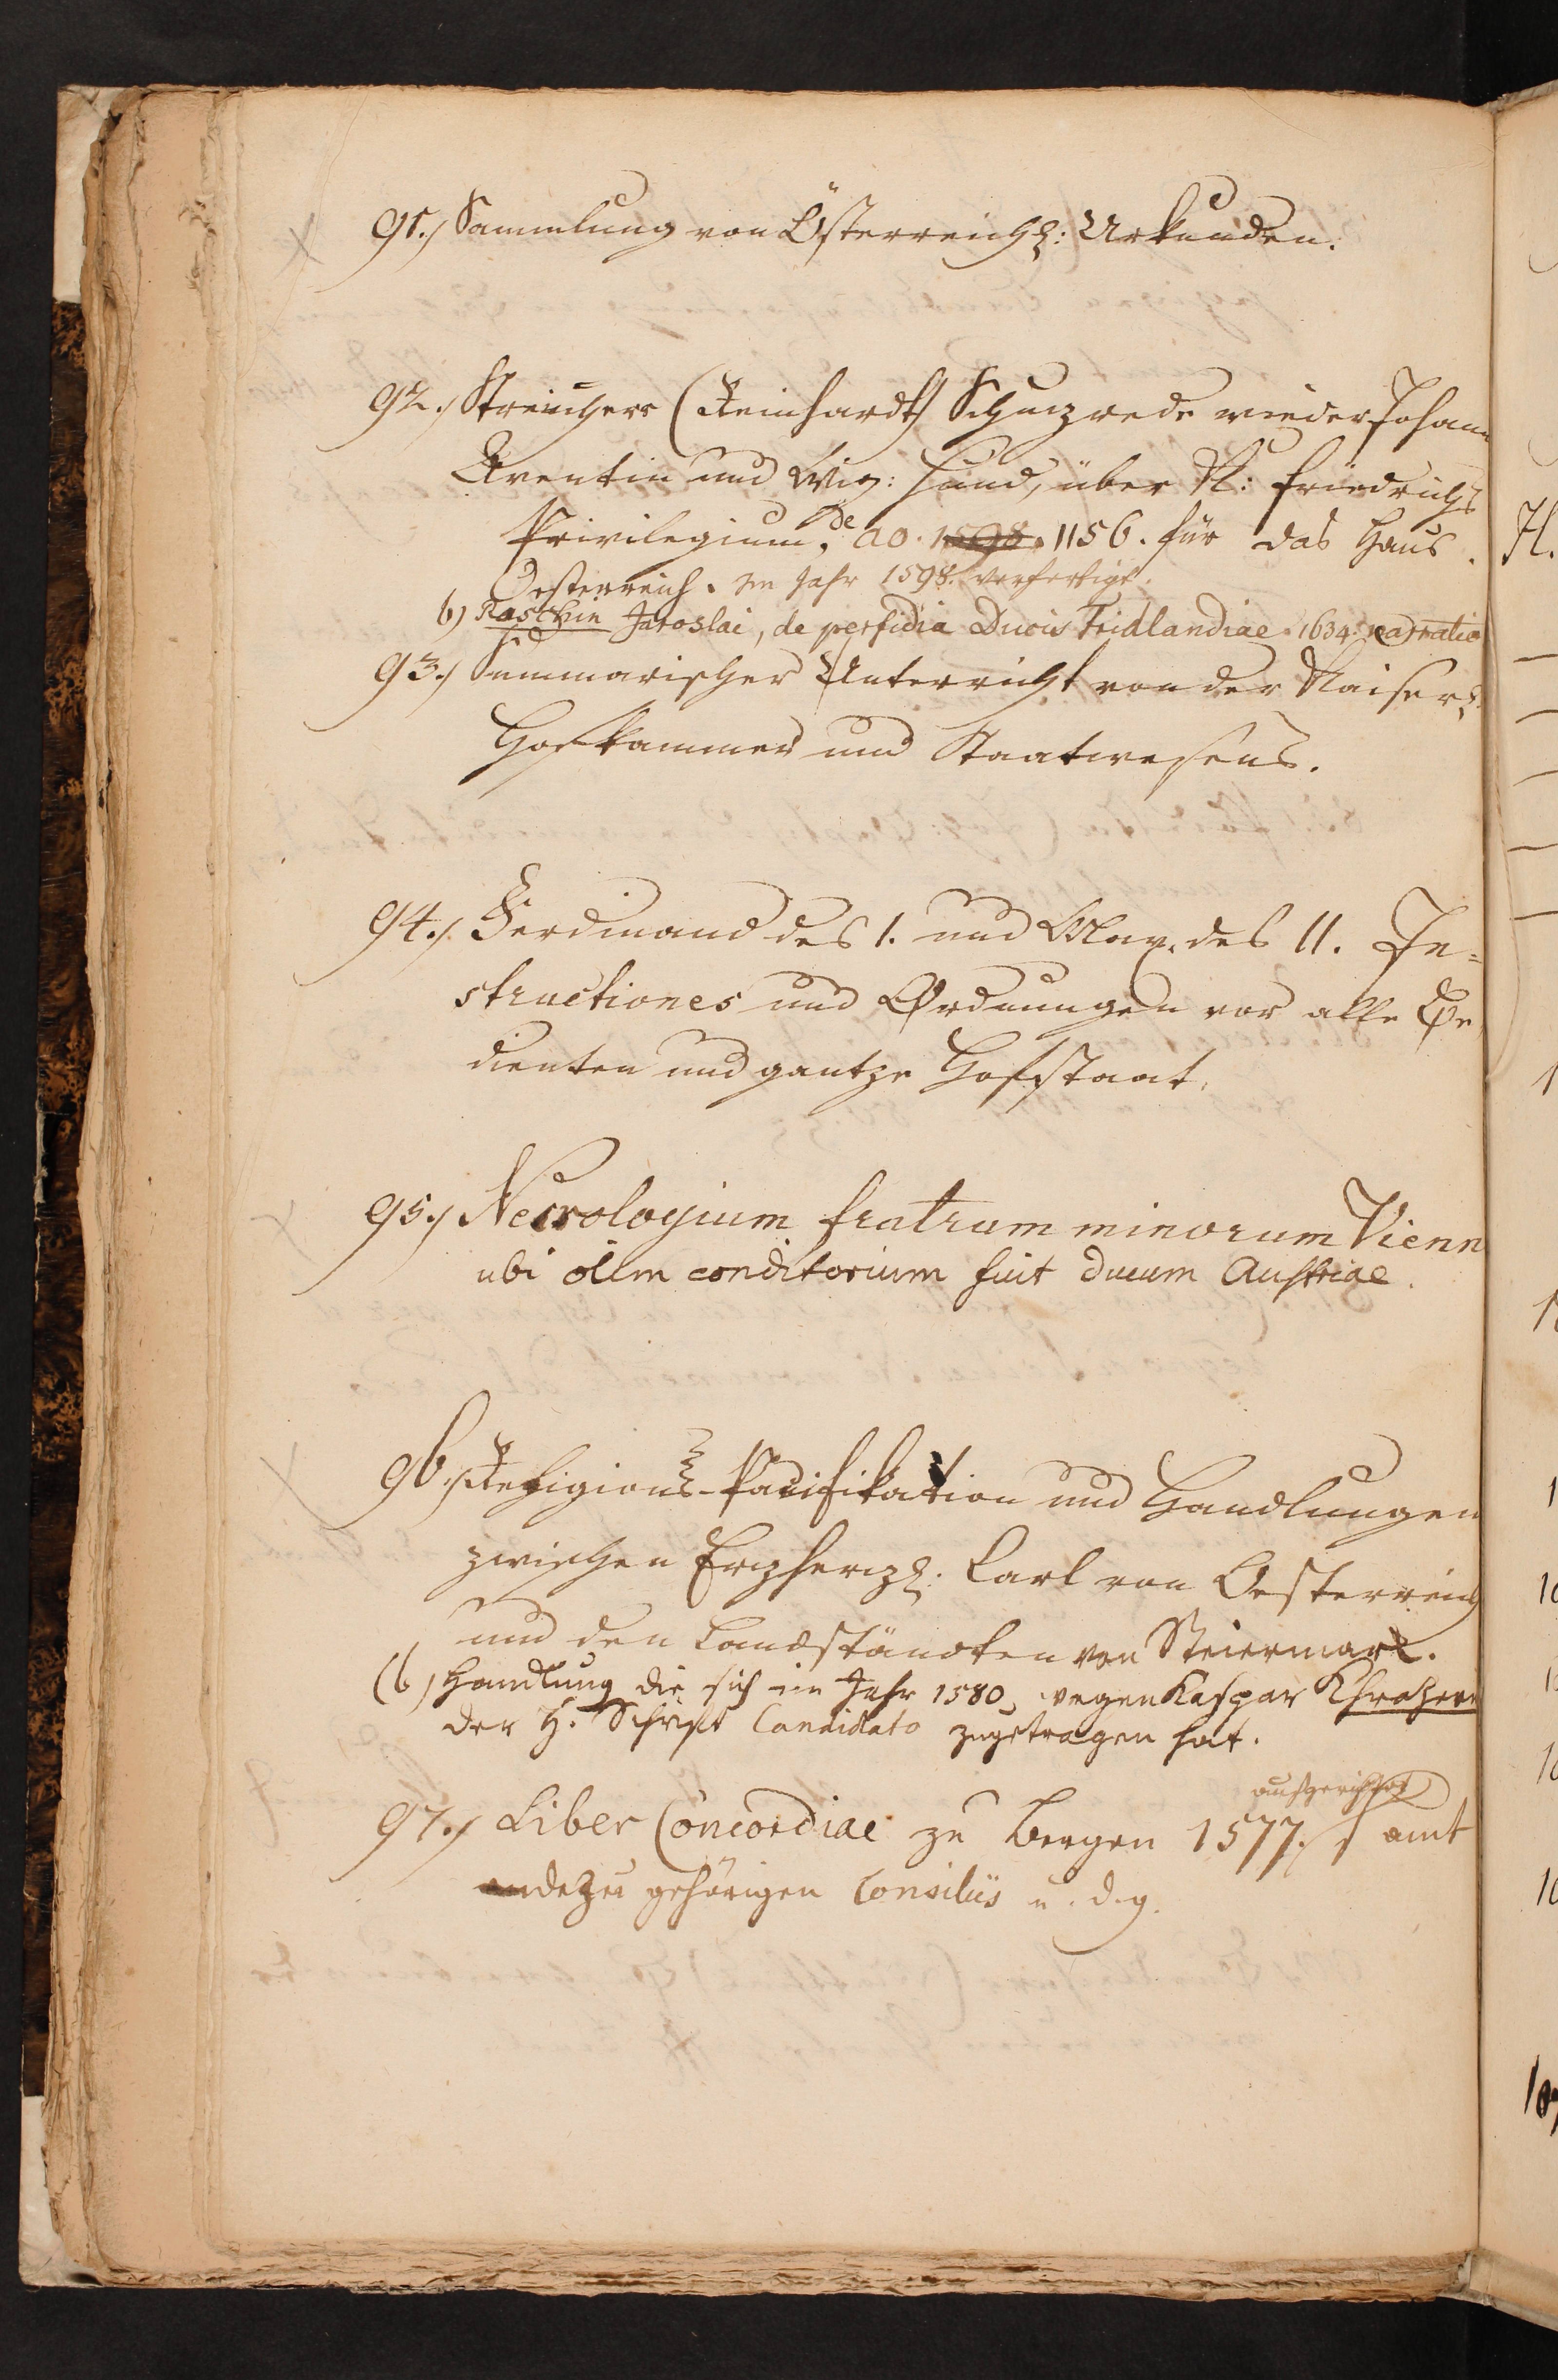 91./ Sammlung von Österreich: Urkunden.
92./ Streichers (Reinhardt) Schuzrede wieder Johann
Aventin und Wig: Hund, über K: Friedrichs
Privilegium, de ao. 1598. 1156. für das Haus
Oesterreich. Im Jahr 1598. verfertigt.
b) Raschin Jaroslai, de perfidia Ducis Fridlandiae 1634. narratio
93./ Summarischer Unterricht von der Kaiserl.
Hofkammer und Staatwesens.
94./ Ferdinand des I. und Max. des II. In=
structiones und Ordnungen vor alle Be
dienten und gantze Hofstaat.
95./ Necrologium fratrum minorum Vienn
ubi olim conditorium fuit ducum Austriae.
96./ Religions-Pacifikation und Handlungen
zwischen Erzherz: Carl von Oesterreich
und den Landständten von Steiermark.
(b) Handlung die sich im Jahr 1580, wegen Kaspar
der H. Schrift Candidato zugetragen hat.
aufgerichtet
97./ Liber Concordiae zu Bergen 1577. samt
dezu gehörigen Consiliis u. d. g.